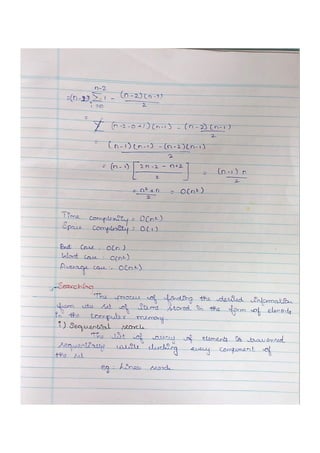 n-2
=(n-1) Σ 1 - (n-2)(n-1)
i=0 2
= (n-2-0+1)(n-1) - (n-2)(n-1)
2
= (n-1)(n-1) - (n-2)(n-1)
2
= (n-1) [ 2n-2-n+2 ] = (n-1) n
2 2
= n²-n = O(n²)
2
Time complexity = O(n²)
Space complexity = O(1)
Best Case : O(n)
Worst case : O(n²)
Average case : O(n²)
Searching
The process of finding the desired information
from the set of items stored in the form of elements
in the computer memory.
1) Sequential search
The list of array of elements is traversed
sequentially while checking every component of
the set
eg : Linear search